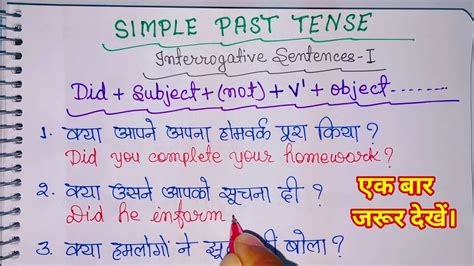 SIMPLE PAST TENSE
Interrogative Sentences-I
Did + Subject + (not) + V' + object--------
1. क्या आपने अपना होमवर्क पूरा किया ?
Did you complete your homework?
2. क्या उसने आपको सूचना दी ?
Did he inform
एक बार
जरूर देखें।
3. क्या हमलोगों ने बोला ?